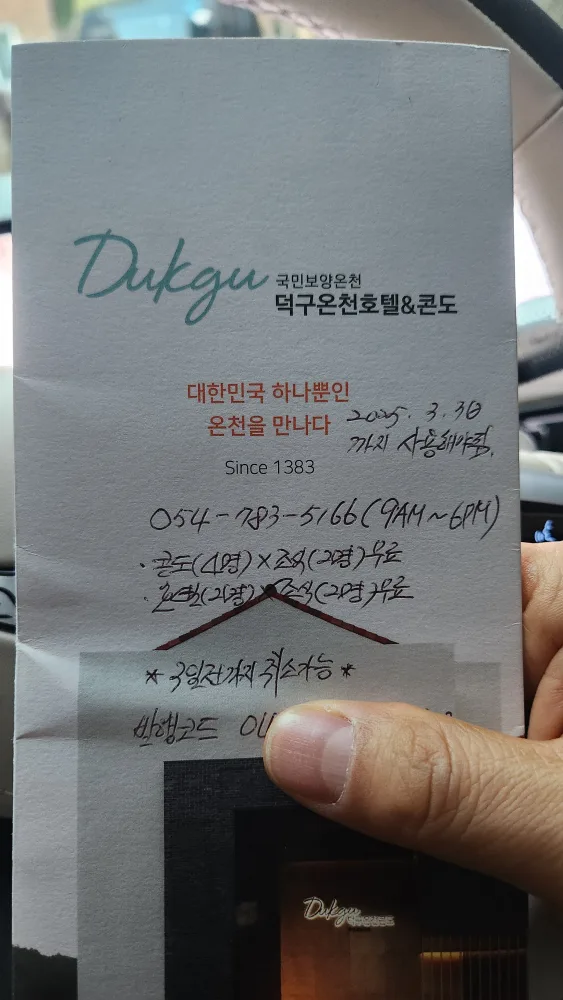 Dukgu
국민보양온천
덕구온천호텔&콘도
대한민국 하나뿐인
온천을 만나다
Since 1383
2025. 3. 30
까지 사용해야함.
054-783-5166(9AM~6PM)
·콘도(4명)×조식(2명)무료
·호텔(2명)×조식(2명)무료
*3일전까지 취소가능*
발행코드 OU
Dukgu 덕구온천콘도